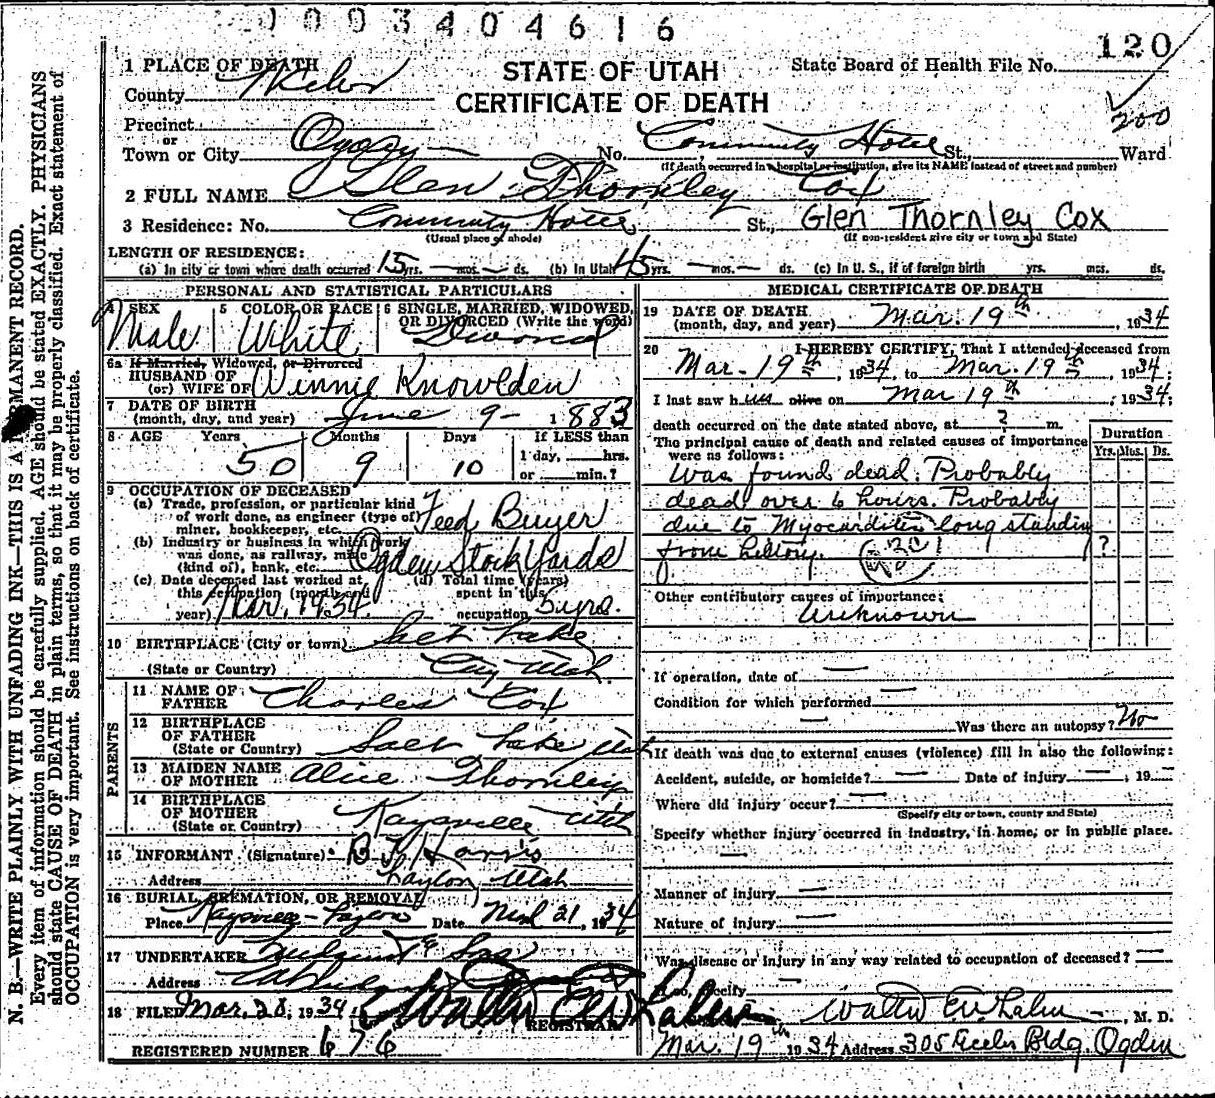 0 0 3 4 0 4 6 1 6
120
200
1 PLACE OF DEATH
County Weber
STATE OF UTAH
CERTIFICATE OF DEATH
State Board of Health File No.
Precinct
or
Town or City Ogden No. Community Hotel St., Ward
(If death occurred in a hospital or institution, give its NAME instead of street and number)
2 FULL NAME Glen Thornley Cox
3 Residence: No. Community Hotel St., Glen Thornley Cox
(Usual place of abode) (If non-resident give city or town and State)
LENGTH OF RESIDENCE:
(a) In city or town where death occurred 15 yrs. — mos. — ds. (b) In Utah 45 yrs. — mos. — ds. (c) In U. S., if of foreign birth yrs. mos. ds.
PERSONAL AND STATISTICAL PARTICULARS
4 SEX Male
5 COLOR OR RACE White
6 SINGLE, MARRIED, WIDOWED, OR DIVORCED (Write the word) Divorced
6a If Married, Widowed, or Divorced
HUSBAND OF
(or) WIFE OF Winnie Knowlden
7 DATE OF BIRTH
(month, day, and year) June 9 - 1883
8 AGE Years Months Days If LESS than
50 9 10 1 day, hrs.
or min.?
9 OCCUPATION OF DECEASED
(a) Trade, profession, or particular kind
of work done, as engineer (type of)
miner, bookkeeper, etc. Feed Buyer
(b) Industry or business in which work
was done, as railway, mine
(kind of), bank, etc. Ogden Stock Yards
(c) Date deceased last worked at
this occupation (month and
year) Mar. 1934
(d) Total time (years)
spent in this
occupation 5 yrs.
10 BIRTHPLACE (City or town) Salt Lake
(State or Country) City Utah
PARENTS
11 NAME OF
FATHER Charles Cox
12 BIRTHPLACE
OF FATHER
(State or Country) Salt Lake Utah
13 MAIDEN NAME
OF MOTHER Alice Thornley
14 BIRTHPLACE
OF MOTHER
(State or Country) Kaysville Utah
15 INFORMANT (Signature) Harris
Address Layton, Utah
16 BURIAL, CREMATION, OR REMOVAL
Place Kaysville-Layton Date Mch 21, 1934
17 UNDERTAKER
Address
18 FILED Mar. 20, 1934 Walter E. Whalen
REGISTRAR
REGISTERED NUMBER 676
MEDICAL CERTIFICATE OF DEATH
19 DATE OF DEATH
(month, day, and year) Mar. 19th, 1934
20 I HEREBY CERTIFY, That I attended deceased from
Mar. 19th, 1934, to Mar. 19th, 1934;
I last saw him alive on Mar 19th, 1934;
death occurred on the date stated above, at ? m.
The principal cause of death and related causes of importance
were as follows:
Duration
Yrs. Mos. Ds.
Was found dead. Probably
dead over 6 hours. Probably
due to Myocarditis long standing
from history. ?
Other contributory causes of importance:
Unknown
If operation, date of —
Condition for which performed —
— Was there an autopsy? No
If death was due to external causes (violence) fill in also the following:
Accident, suicide, or homicide? — Date of injury — , 19 —
Where did injury occur? —
(Specify city or town, county and State)
Specify whether injury occurred in industry, in home, or in public place.
—
Manner of injury —
Nature of injury —
Was disease or injury in any way related to occupation of deceased? —
If so, specify —
Walter E. Whalen, M. D.
Mar. 19th 1934 Address 305 Eccles Bldg. Ogden
N. B.—WRITE PLAINLY WITH UNFADING INK—THIS IS A PERMANENT RECORD.
Every item of information should be carefully supplied. AGE should be stated EXACTLY. PHYSICIANS
should state CAUSE OF DEATH in plain terms, so that it may be properly classified. Exact statement of
OCCUPATION is very important. See instructions on back of certificate.